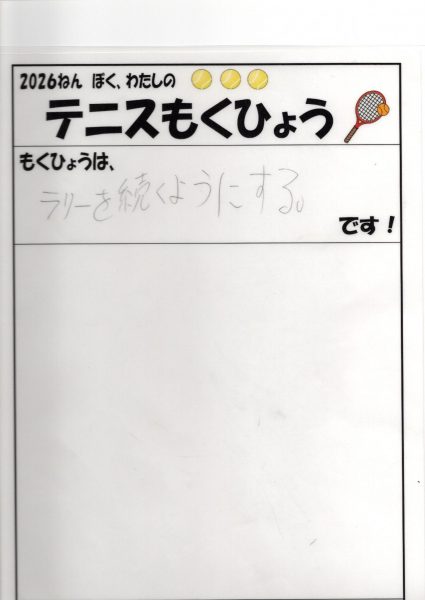 2026ねん ぼく、わたしの
テニスもくひょう
もくひょうは、
ラリーを続くようにする。
です！